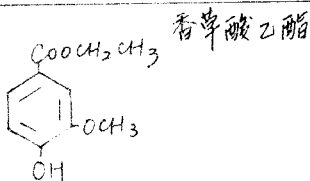 香草酸乙酯
COOCH₂CH₃
OCH₃
OH